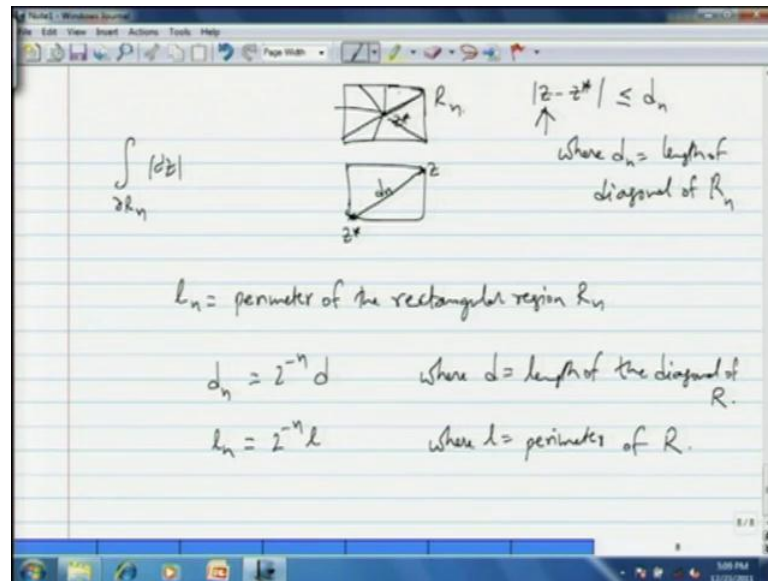 Note1 - Windows Journal
File Edit View Insert Actions Tools Help
Page Width
R_n
z*
|z - z*| ≤ d_n
↑
where d_n = length of
diagonal of R_n
∫ |dz|
∂R_n
z
d_n
z*
l_n = perimeter of the rectangular region R_n
d_n = 2^{-n} d where d = length of the diagonal of
R.
l_n = 2^{-n} l where l = perimeter of R.
8 / 8
8
5:09 PM